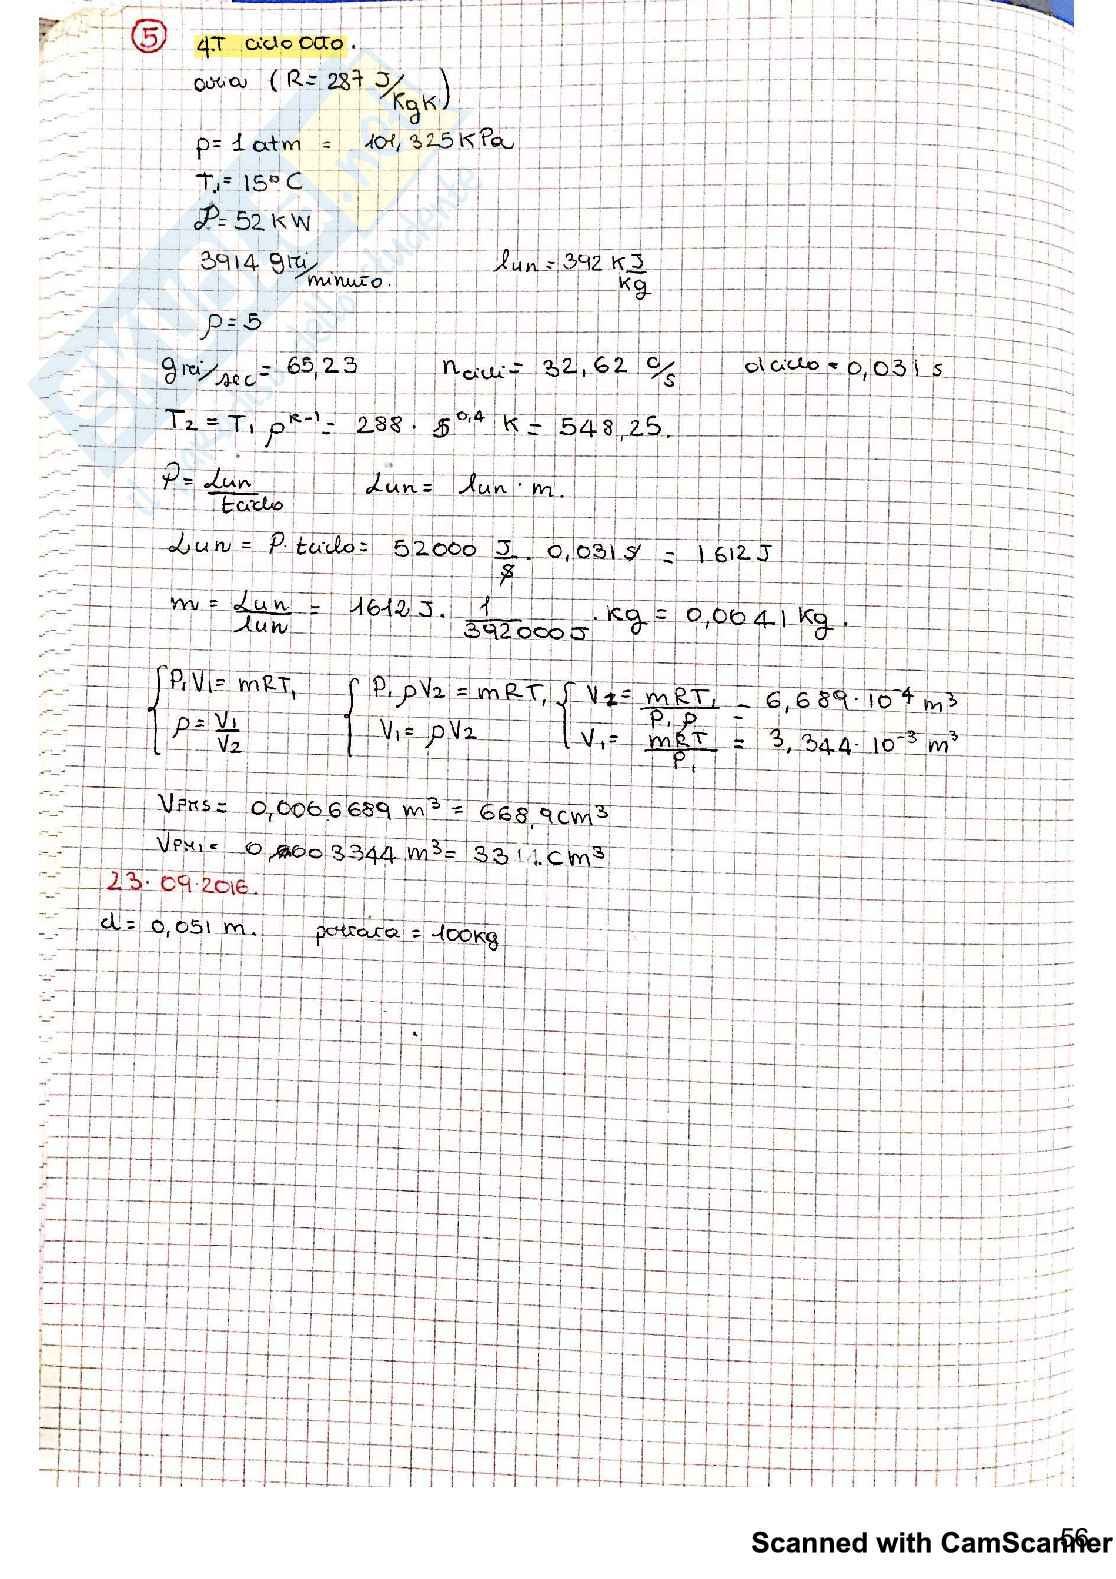 5 4T ciclo OTTO.
aria (R= 287 J/KgK)
p= 1 atm = 101,325 KPa
T1= 15° C
P= 52 KW
3914 giri/minuto. lun = 392 KJ/kg
ρ= 5
giri/sec = 65,23 ncicli = 32,62 c/s dciclo = 0,031 s
T2 = T1 ρ^K-1 = 288 · 5^0,4 K = 548,25.
P= Lun/tciclo Lun = lun · m.
Lun = P. tciclo = 52000 J/s · 0,031 s = 1612 J
m = Lun/lun = 1612 J. 1/392000 J · kg = 0,0041 kg.
{ P1 V1 = mRT1 { P1 ρV2 = mRT1 { V2 = mRT1/P1 ρ = 6,689·10^-4 m^3
ρ= V1/V2 V1 = ρV2 V1 = mRT/P1 = 3,344·10^-3 m^3
VPMS = 0,0006689 m^3 = 668,9 cm^3
VPMI = 0,003344 m^3 = cm^3
23.09.2016.
d= 0,051 m. portata = 100 kg
Scanned with CamScanner
56